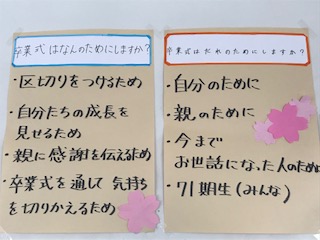 卒業式はなんのためにしますか?
・区切りをつけるため
・自分たちの成長を
見せるため
・親に感謝を伝えるため
・卒業式を通して 気持ち
を切りかえるため
卒業式はだれのためにしますか?
・自分のために
・親のために
・今まで
お世話になった人のために
・71期生(みんな)